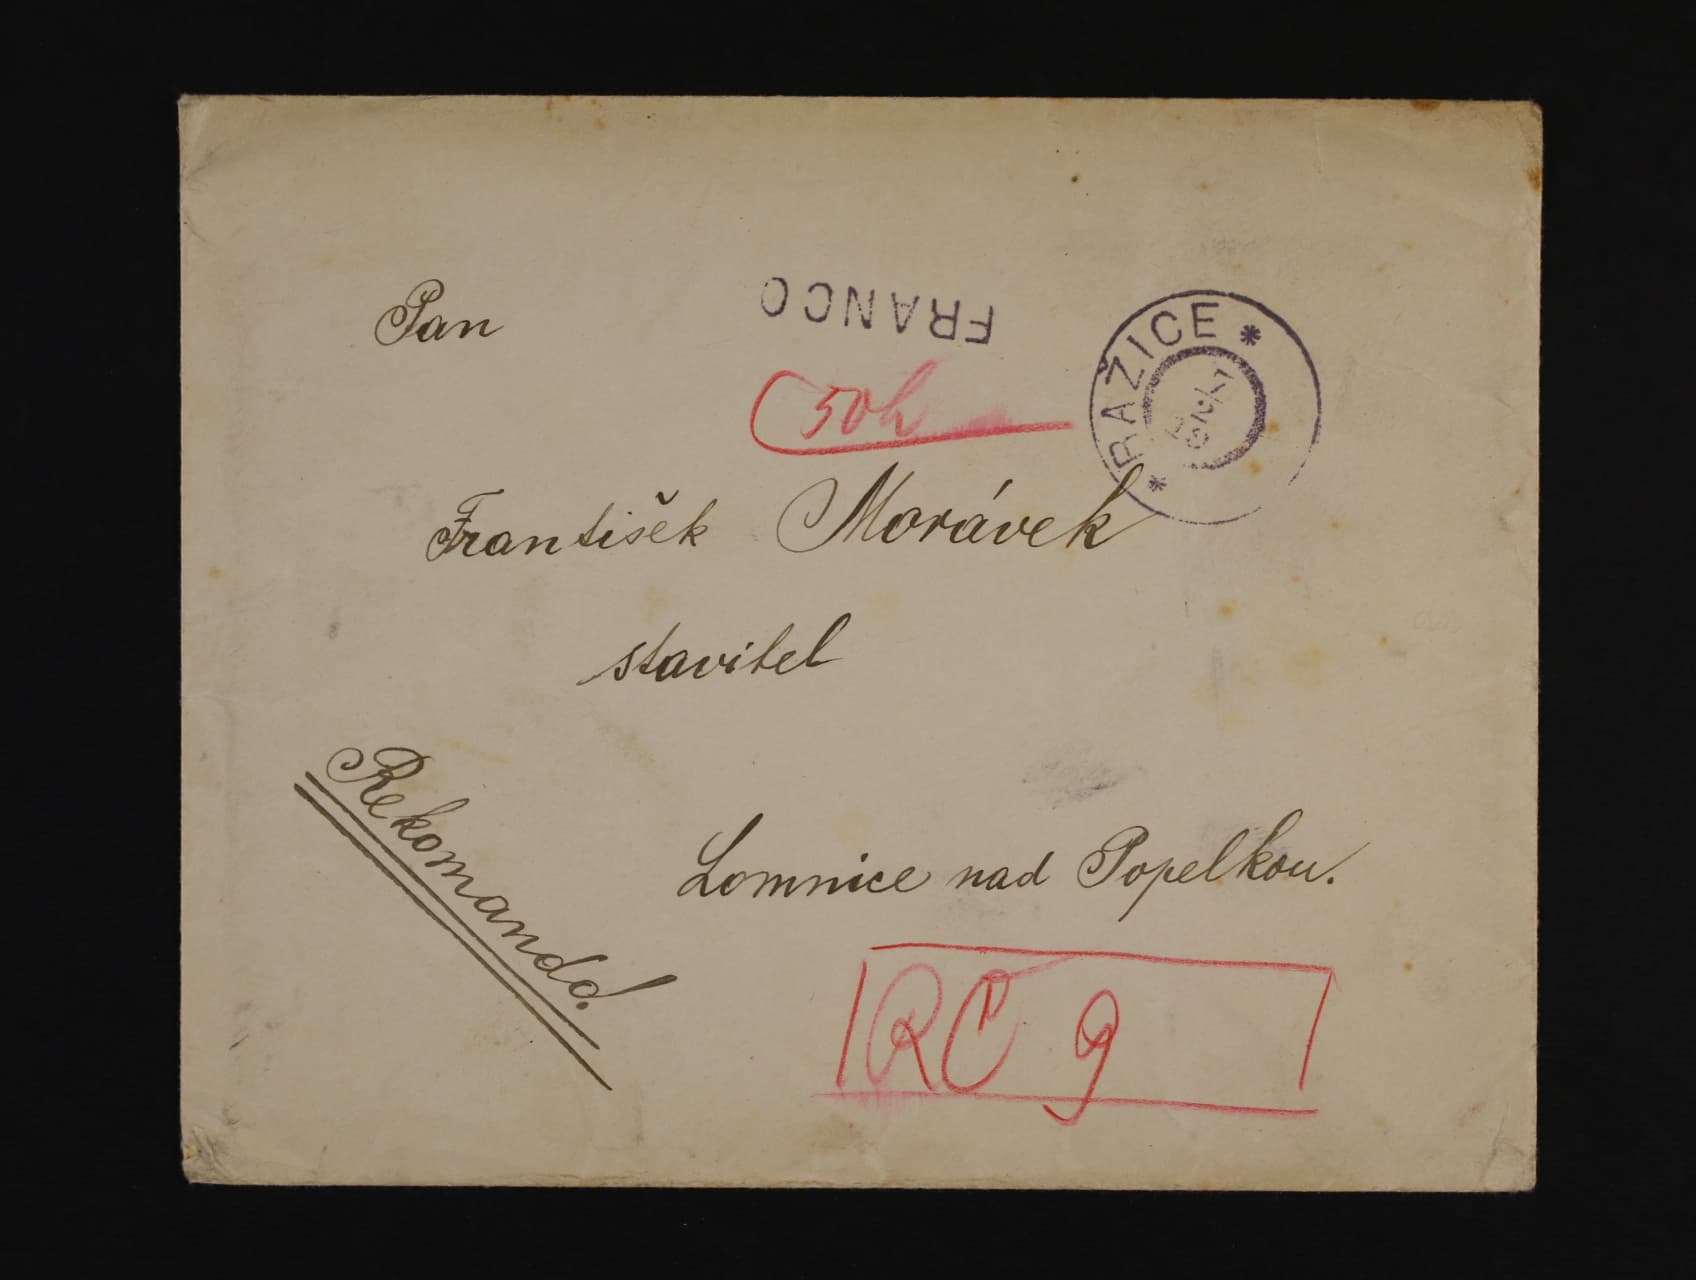 FRANCO
* RAŽICE *
Pan
50h
František Morávek
stavitel
Rekomando.
Lomnice nad Popelkou.
RČ 9